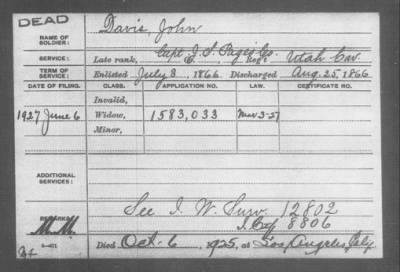 DEAD
NAME OF SOLDIER: Davis, John
Capt. J. S. Page's Co.
SERVICE: Late rank, Reg't Utah Cav.
TERM OF SERVICE: Enlisted July 8, 1866. Discharged Aug. 25, 1866
DATE OF FILING. CLASS. APPLICATION NO. LAW. CERTIFICATE NO.
Invalid,
1927 June 6 Widow, 1583,033 Mar 3-27
Minor,
ADDITIONAL SERVICES:
See I. W. Surv. 12802
REMARKS: I. Ctf 8806
M.M.
Died Oct. 6, 1925, at Los Angeles, Caly.